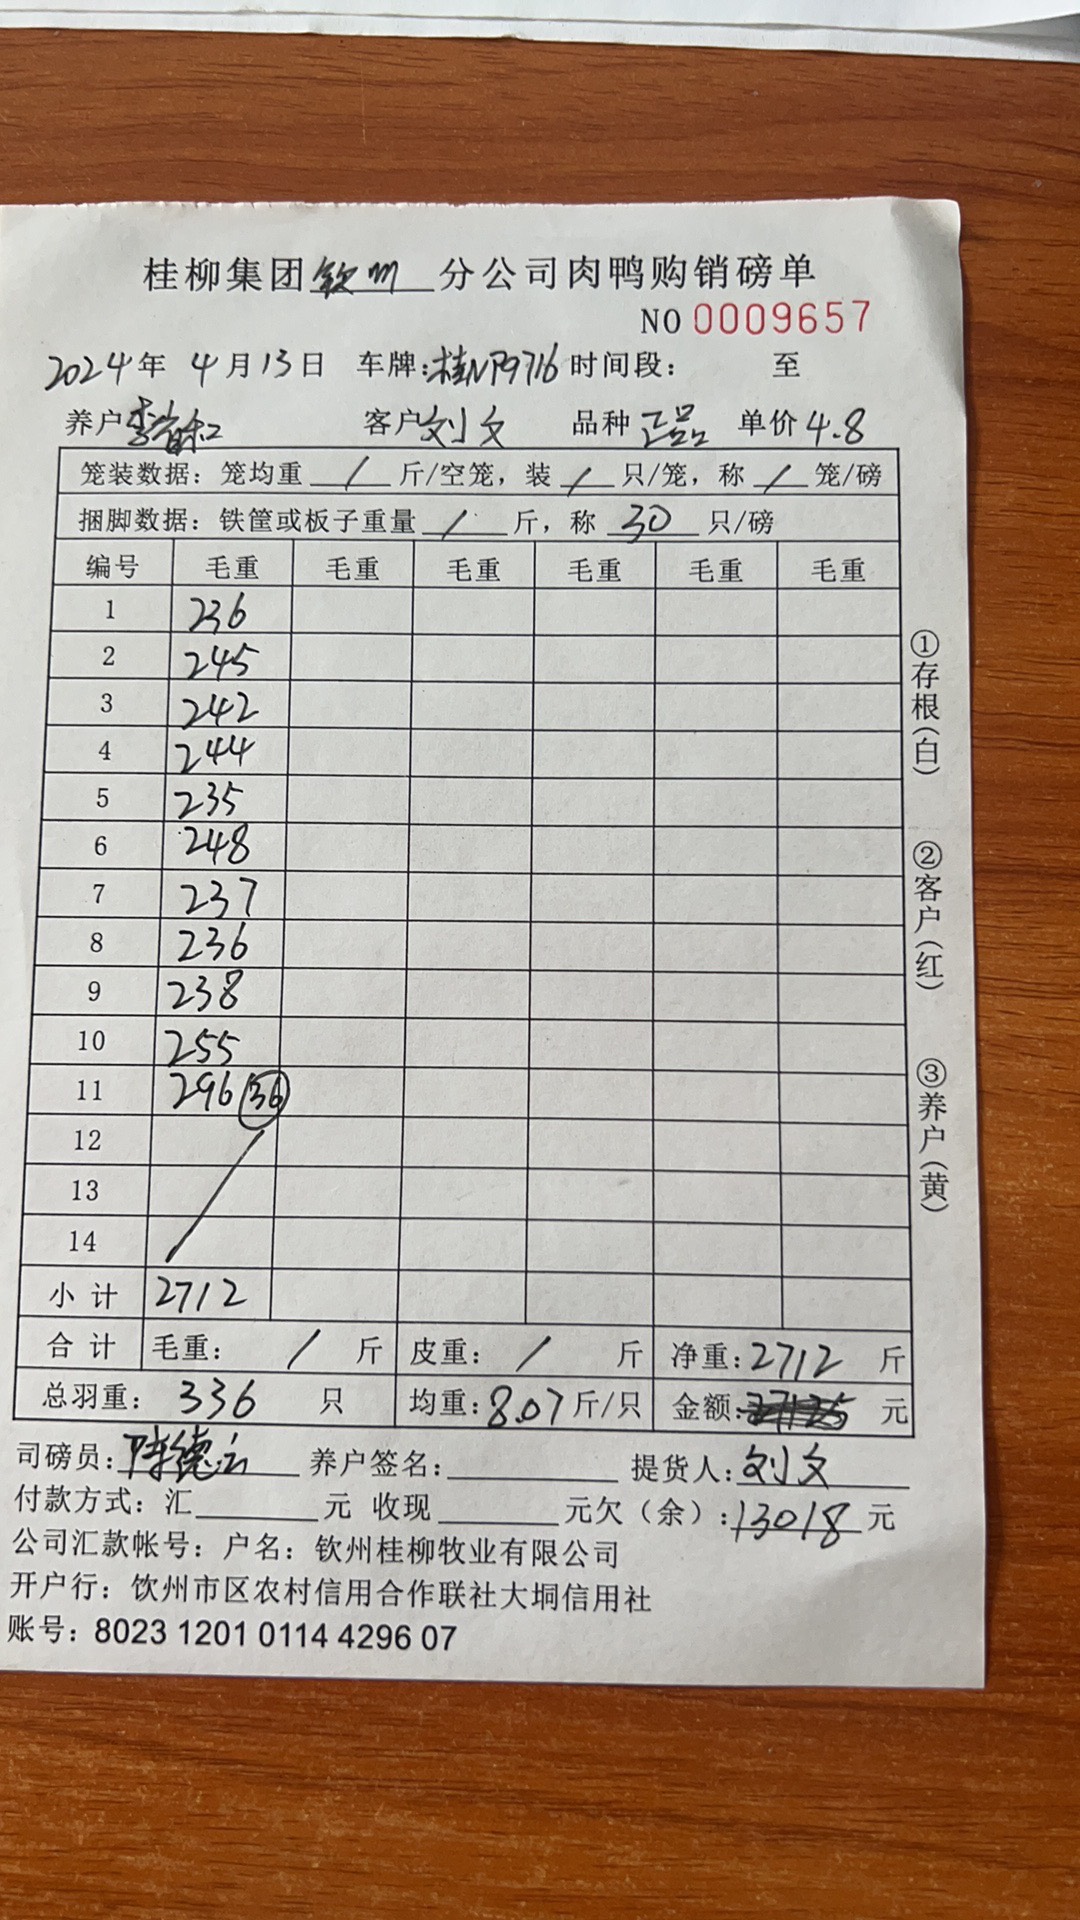 桂柳集团钦州分公司肉鸭购销磅单
NO 0009657
2024年 4月13日 车牌:桂NP9716 时间段: 至
养户李 客户刘文 品种正品 单价4.8
笼装数据：笼均重 / 斤/空笼，装 / 只/笼，称 / 笼/磅
捆脚数据：铁筐或板子重量 / 斤，称 30 只/磅
编号 毛重 毛重 毛重 毛重 毛重 毛重
1 236
2 245
3 242
4 244
5 235
6 248
7 237
8 236
9 238
10 255
11 296 36
12
13
14
小计 2712
合计 毛重: / 斤 皮重: / 斤 净重:2712 斤
总羽重: 336 只 均重:8.07斤/只 金额: 元
司磅员:陈德云 养户签名: 提货人:刘文
付款方式：汇 元 收现 元欠（余）:13018元
公司汇款帐号：户名：钦州桂柳牧业有限公司
开户行：饮州市区农村信用合作联社大垌信用社
账号：8023 1201 0114 4296 07
①存根（白）
②客户（红）
③养户（黄）